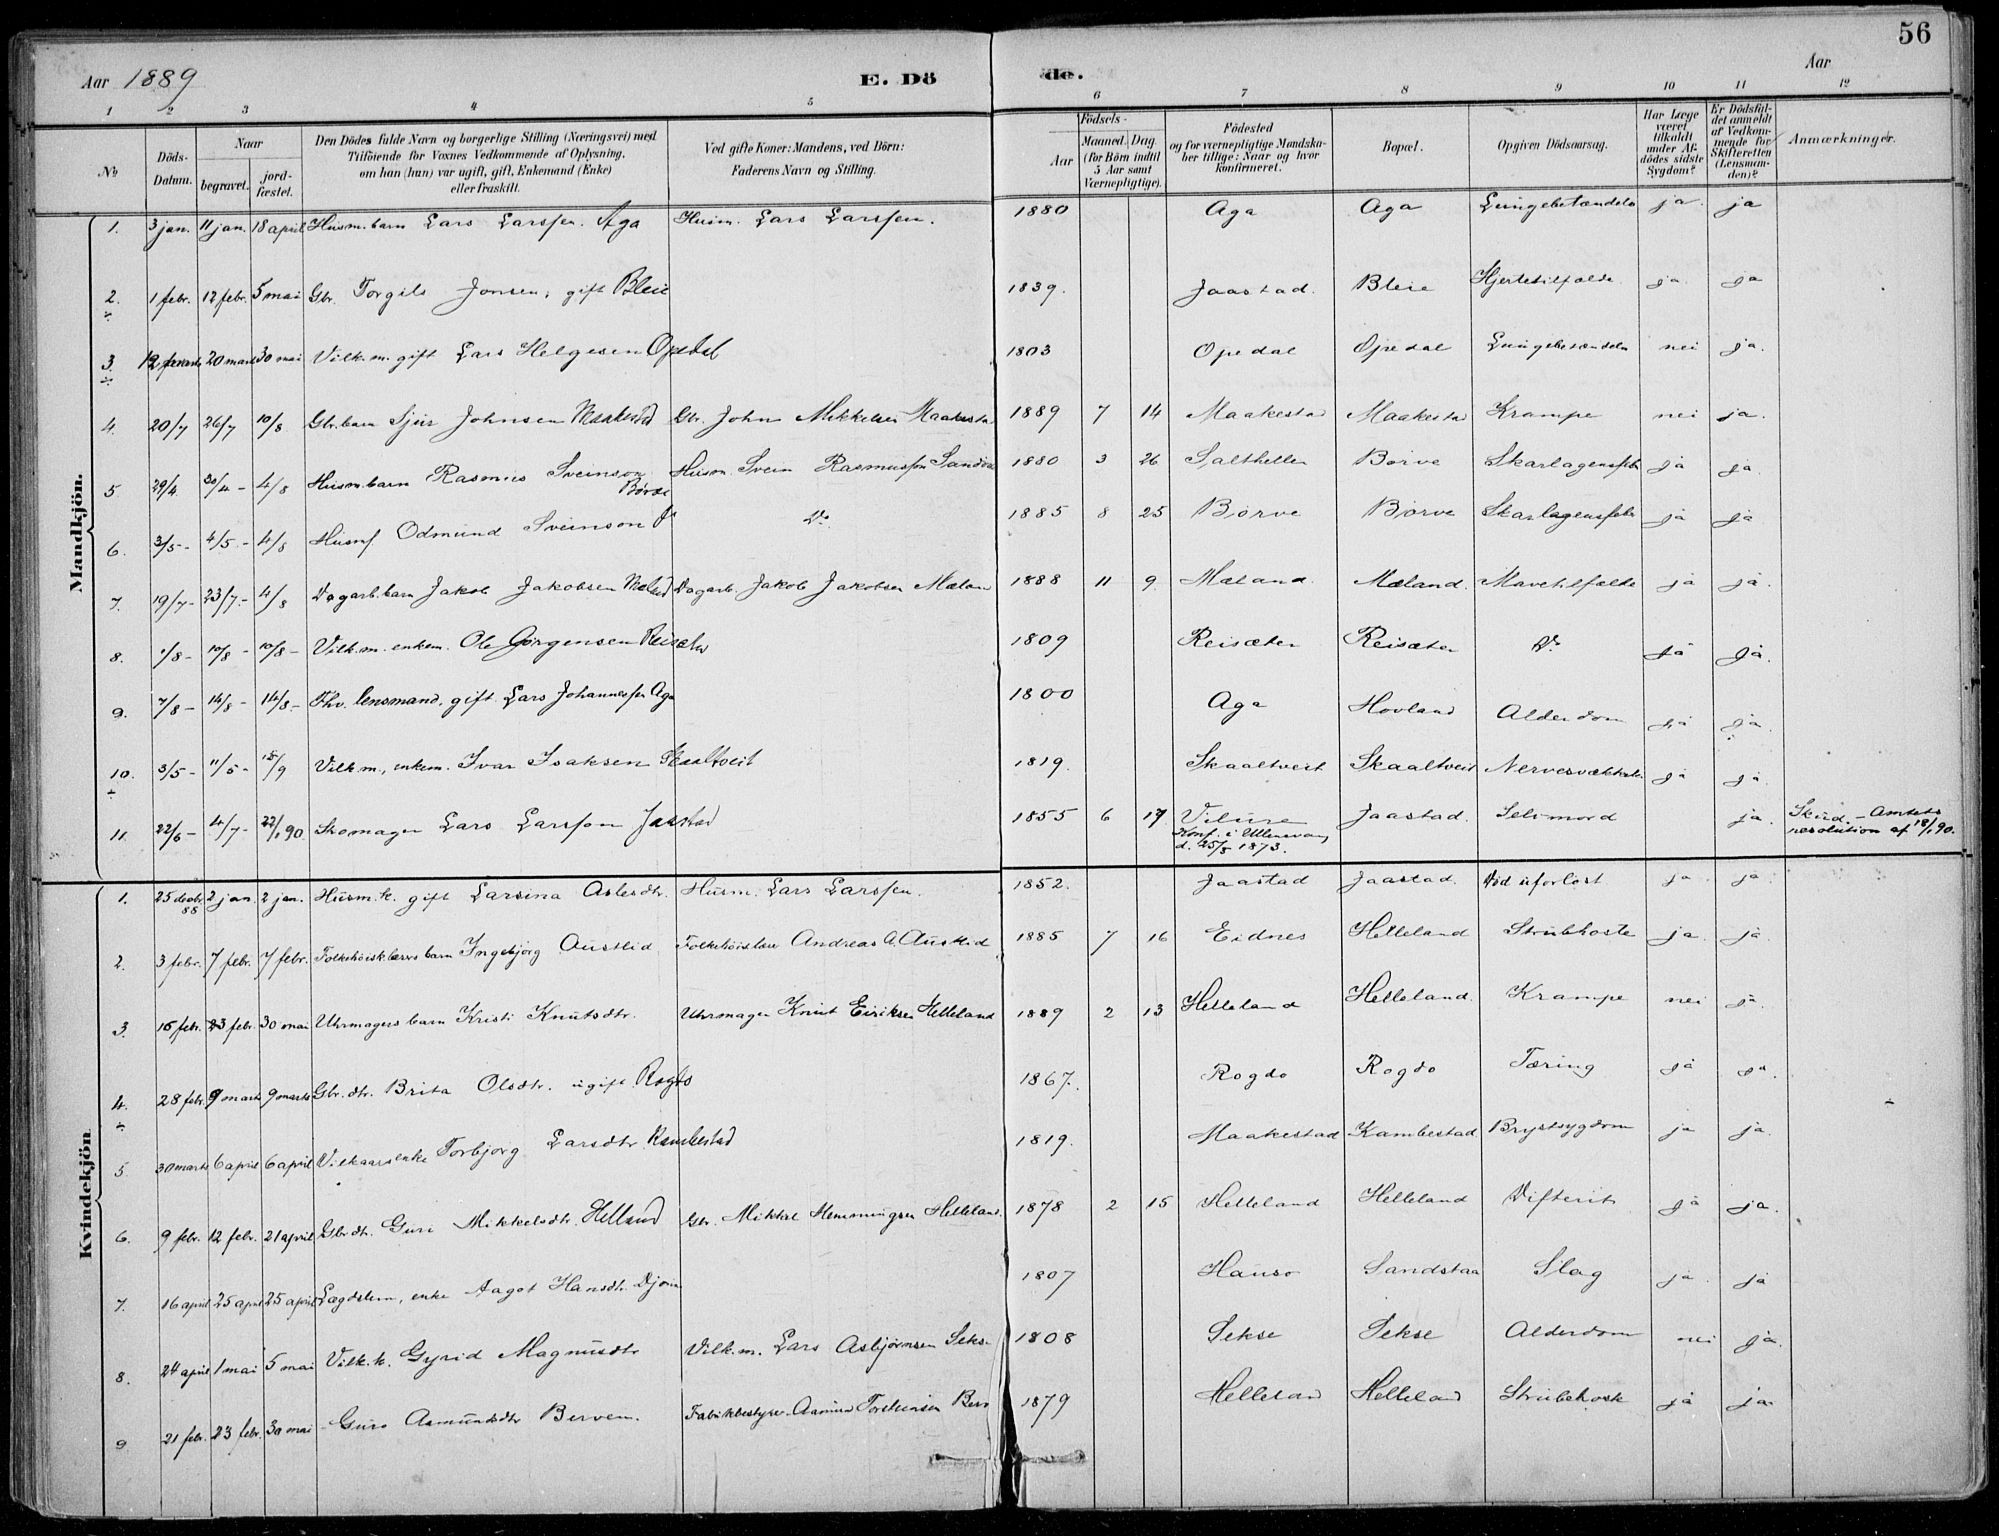 56
Aar 1889
E. Dö
de.
Aar
1 2 3 4 5 6 7 8 9 10 11 12
No
Döds-Datum.
Naar
begravet.
jord-fæstet.
Den Dödes fulde Navn og borgerlige Stilling (Næringsvei) med
Tilföiende for Voxnes Vedkommende af Oplysning,
om han (hun) var ugift, gift, Enkemand (Enke)
eller fraskilt.
Ved gifte Koner: Mandens, ved Börn:
Faderens Navn og Stilling.
Födsels-
Aar
Maaned. Dag.
(for Børn indtil
5 Aar samt
Værnepligtige).
Födested
og for værnepligtige Mandska-
ber tillige: Naar og hvor
konfirmeret.
Bopæl.
Opgiven Dödsaarsag.
Har Læge
været
tilkaldt
under Af-
dödes sidste
Sygdom?
Er Dödsfal-
det anmeldt
af Vedkom-
mende for
Skifteretten
(Lensman-
den)?
Anmærkninger.
Mandkjön.
1. 3 jan. 11 jan. 18 april Husm.barn Lars Larssen. Aga Husm. Lars Larssen. 1880 Aga Aga Lungebetændels ja. ja
2. ÷ 1 febr. 12 febr. 5 mai Gbr. Torgils Jonsen, gift Bleie 1839. Jaastad. Bleie Hjertetilfælde. ja. ja
3. ÷ 12 marts 20 marts 30 mai Vilk.m. gift Lars Helgesen Opedal 1803 Opedal Opedal Lungebetændels nei ja.
4. 20/7 26/7 10/8 Gbr.barn Sjur Johnsen Maakestad Gbr. John Mikkelsen Maakesta 1889 7 14 Maakestad Maakestad Krampe nei ja.
5 29/4. 30/4 - 4/8 Husm.barn Rasmus Sveinson Børve Husm. Svein Rasmusson 1880 3 26 Salthelle Børve Skarlagensfebr ja ja.
6. 3/5 - 4/5 - 4/8 Odmund Sveinson Do Do 1885 8 25 Børve Børve Skarlagensfebr ja ja
7. 19/7 - 23/7 - 4/8 Dagarb.barn Jakob Jakobsen Mæland Dagarb. Jakob Jakobsen Mælan 1888 11 9. Mæland. Mæland. Mavetilfælde ja ja.
8. 1/8 - 10/8 - 10/8 - Vilk.m. enkem. Ole Jörgensen Reisæter 1809 Reisæter Reisæter Do ja ja.
9. 7/8 - 14/8 - 14/8 - Fhv. lensmand, gift. Lars Johannessen Aga 1800 Aga Hovland Alderdom ja ja.
10. ÷ 3/5 - 11/5 - 15/9 Vilk.m., enkem. Ivar Isaksen Skaaltveit 1819. Skaaltveit Skaaltveit ja ja.
11. 22/6 - 4/7 - 22/1 90. Skomager Lars Larsson Jaastad 1855 6 17 Vilure Jaastad. Selvmord ja. Skud. - Amtets
Konf. i Ullensvang
d. 25/5 1873.
resolution af 18/1 90.
Kvindekjön
1. 25 decbr. 88 2 jan. 2 jan. Husm.k. gift Larsina Aslesdtr. Husm. Lars Larssen. 1852. Jaastad Jaastad. Död uforlöst ja. ja.
2. 3 febr. 7 febr. 7 febr. Folkehöiskl.lærers barn Ingebjörg Austlid Andreas A. Austlid 1885 7 16 Eidnes Helleland Strubehoste ja. ja.
3. 15 febr. 23 febr. 30 mai Uhrmagers barn Kristi Knutsdtr. Uhrmager Knut Eiriksen Helleland 1889 2 13 Helleland Helleland. Krampe nei ja.
4. ÷ 28 febr. 9 marts 9 marts Gbr.dtr. Brita Olsdtr. ugift. Rogdo 1867. Rogdo Rogdo Tæring ja ja.
5 30 marts 6 april 6 april Vilkaarsenke Torbjorg Larsdtr Kambestad 1819. Maakestad Kambestad Brystsygdom ja ja.
6. 9 febr. 12 febr. 21 april Gbr.dtr. Guri Mikkelsdtr. Helland Gbr. Mikkel Hemmingsen Helleland. 1878 2 15 Helleland Helleland Difterit ja ja.
7. 16 april 25 april 25 april Lægdslem, enke Aagot Hansdtr. 1807 Hauso Sandstaa Slag ja. ja
8. 24 april 1 mai 5 mai Vilk.k. Gyrid Magnusdtr Vilk.m. Lars Asbjørnsen Sekse 1808 Sekse Sekse Alderdom nei ja.
9 21 febr. 23 febr. 30 mai - Guro Asmundsdtr Berven. Fabrikbestyrer Aamund Torsteinsen Berv 1879 Hellelan Helleland Strubehost ja ja.